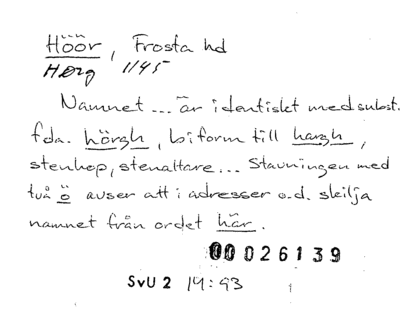 Höör, Frosta hd
Hørg 1145
Namnet ... är identiskt med subst.
fda. hörgh, biform till hargh,
stenhop, stenaltare... Stavningen med
två ö avser att i adresser o.d. skilja
namnet från ordet här.
00026139
SvU 2 14:93